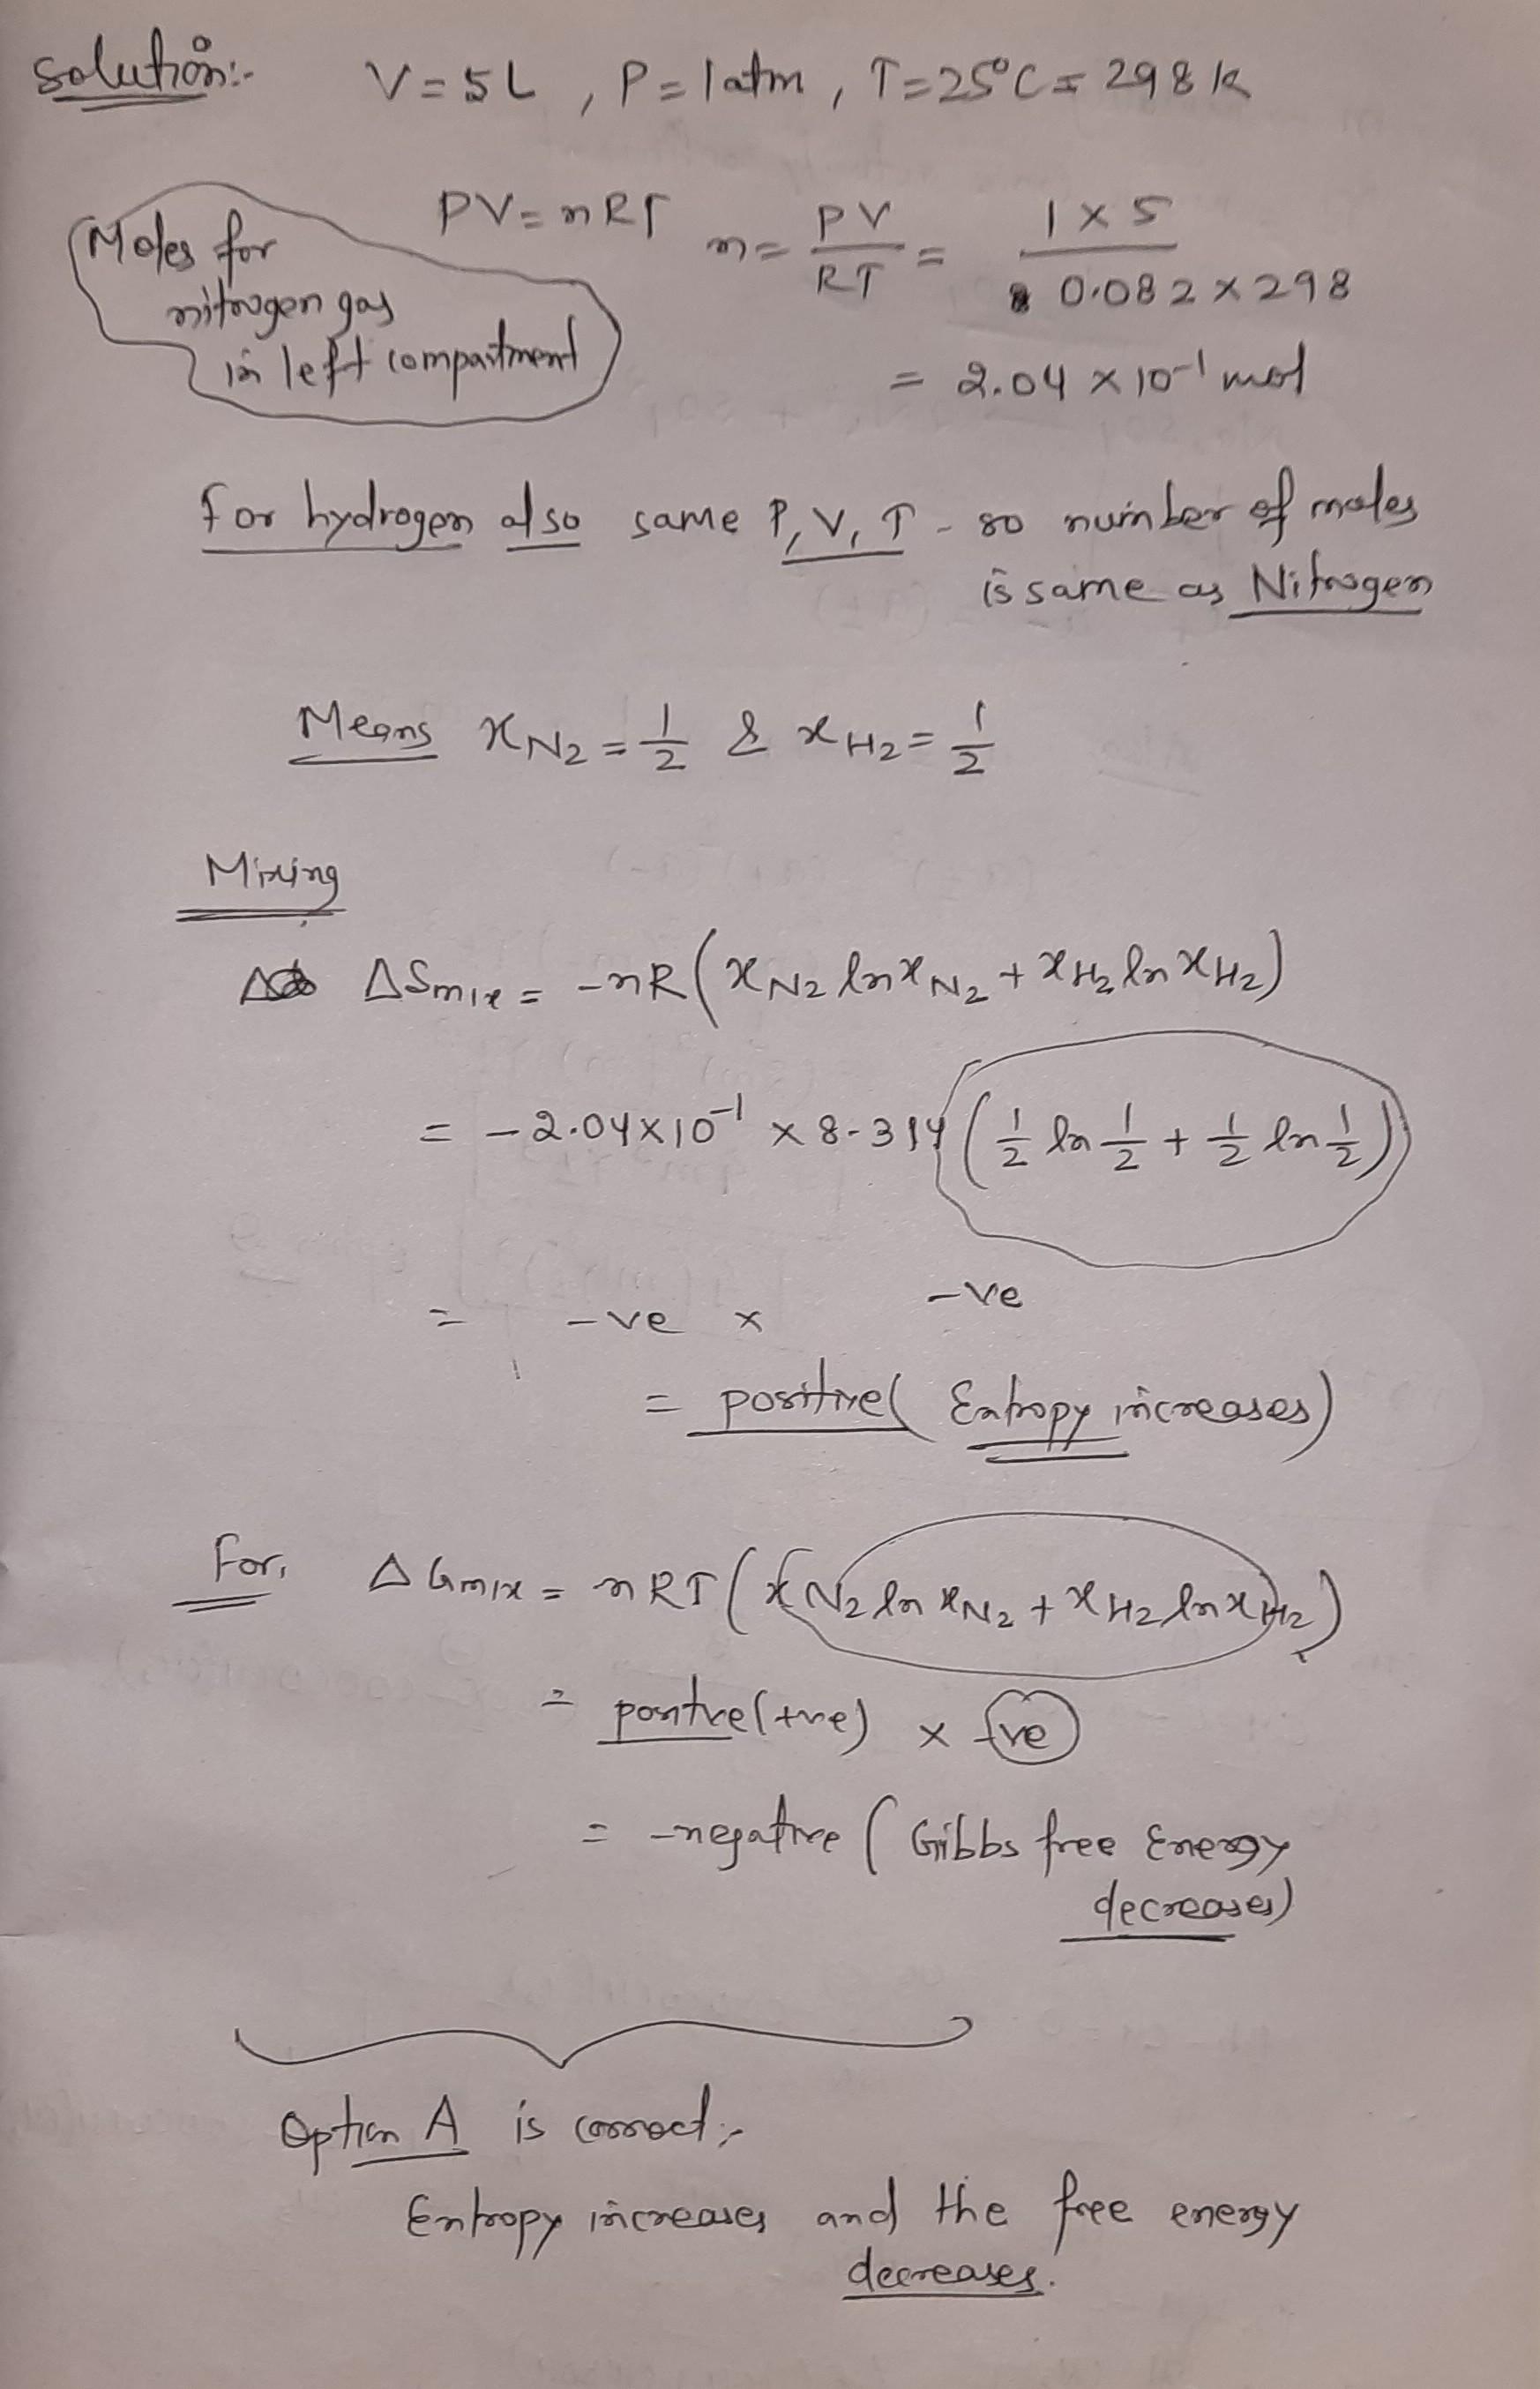 Solution:- V=5L, P=1atm, T=25°C = 298 K
PV=nRT n= PV/RT = 1×5/0.082×298
(Moles for
nitrogen gas
in left compartment)
= 2.04 × 10⁻¹ mol
For hydrogen also same P, V, T - so number of moles
is same as Nitrogen
Means xN₂ = 1/2 & xH₂ = 1/2
Mixing
ΔSmix = -nR(xN₂ ln xN₂ + xH₂ ln xH₂)
= -2.04×10⁻¹ × 8.314 (1/2 ln 1/2 + 1/2 ln 1/2)
= -ve × -ve
= positive (Entropy increases)
For, ΔGmix = nRT (xN₂ ln xN₂ + xH₂ ln xH₂)
= positive(+ve) × -ve
= -negative (Gibbs free Energy
decreases)
Option A is correct:-
Entropy increases and the free energy
decreases.